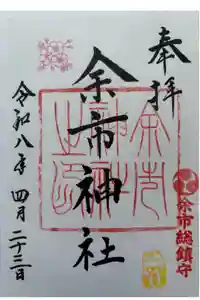 奉拝
余市神社
余市総鎮守
令和八年 四月 二十三日